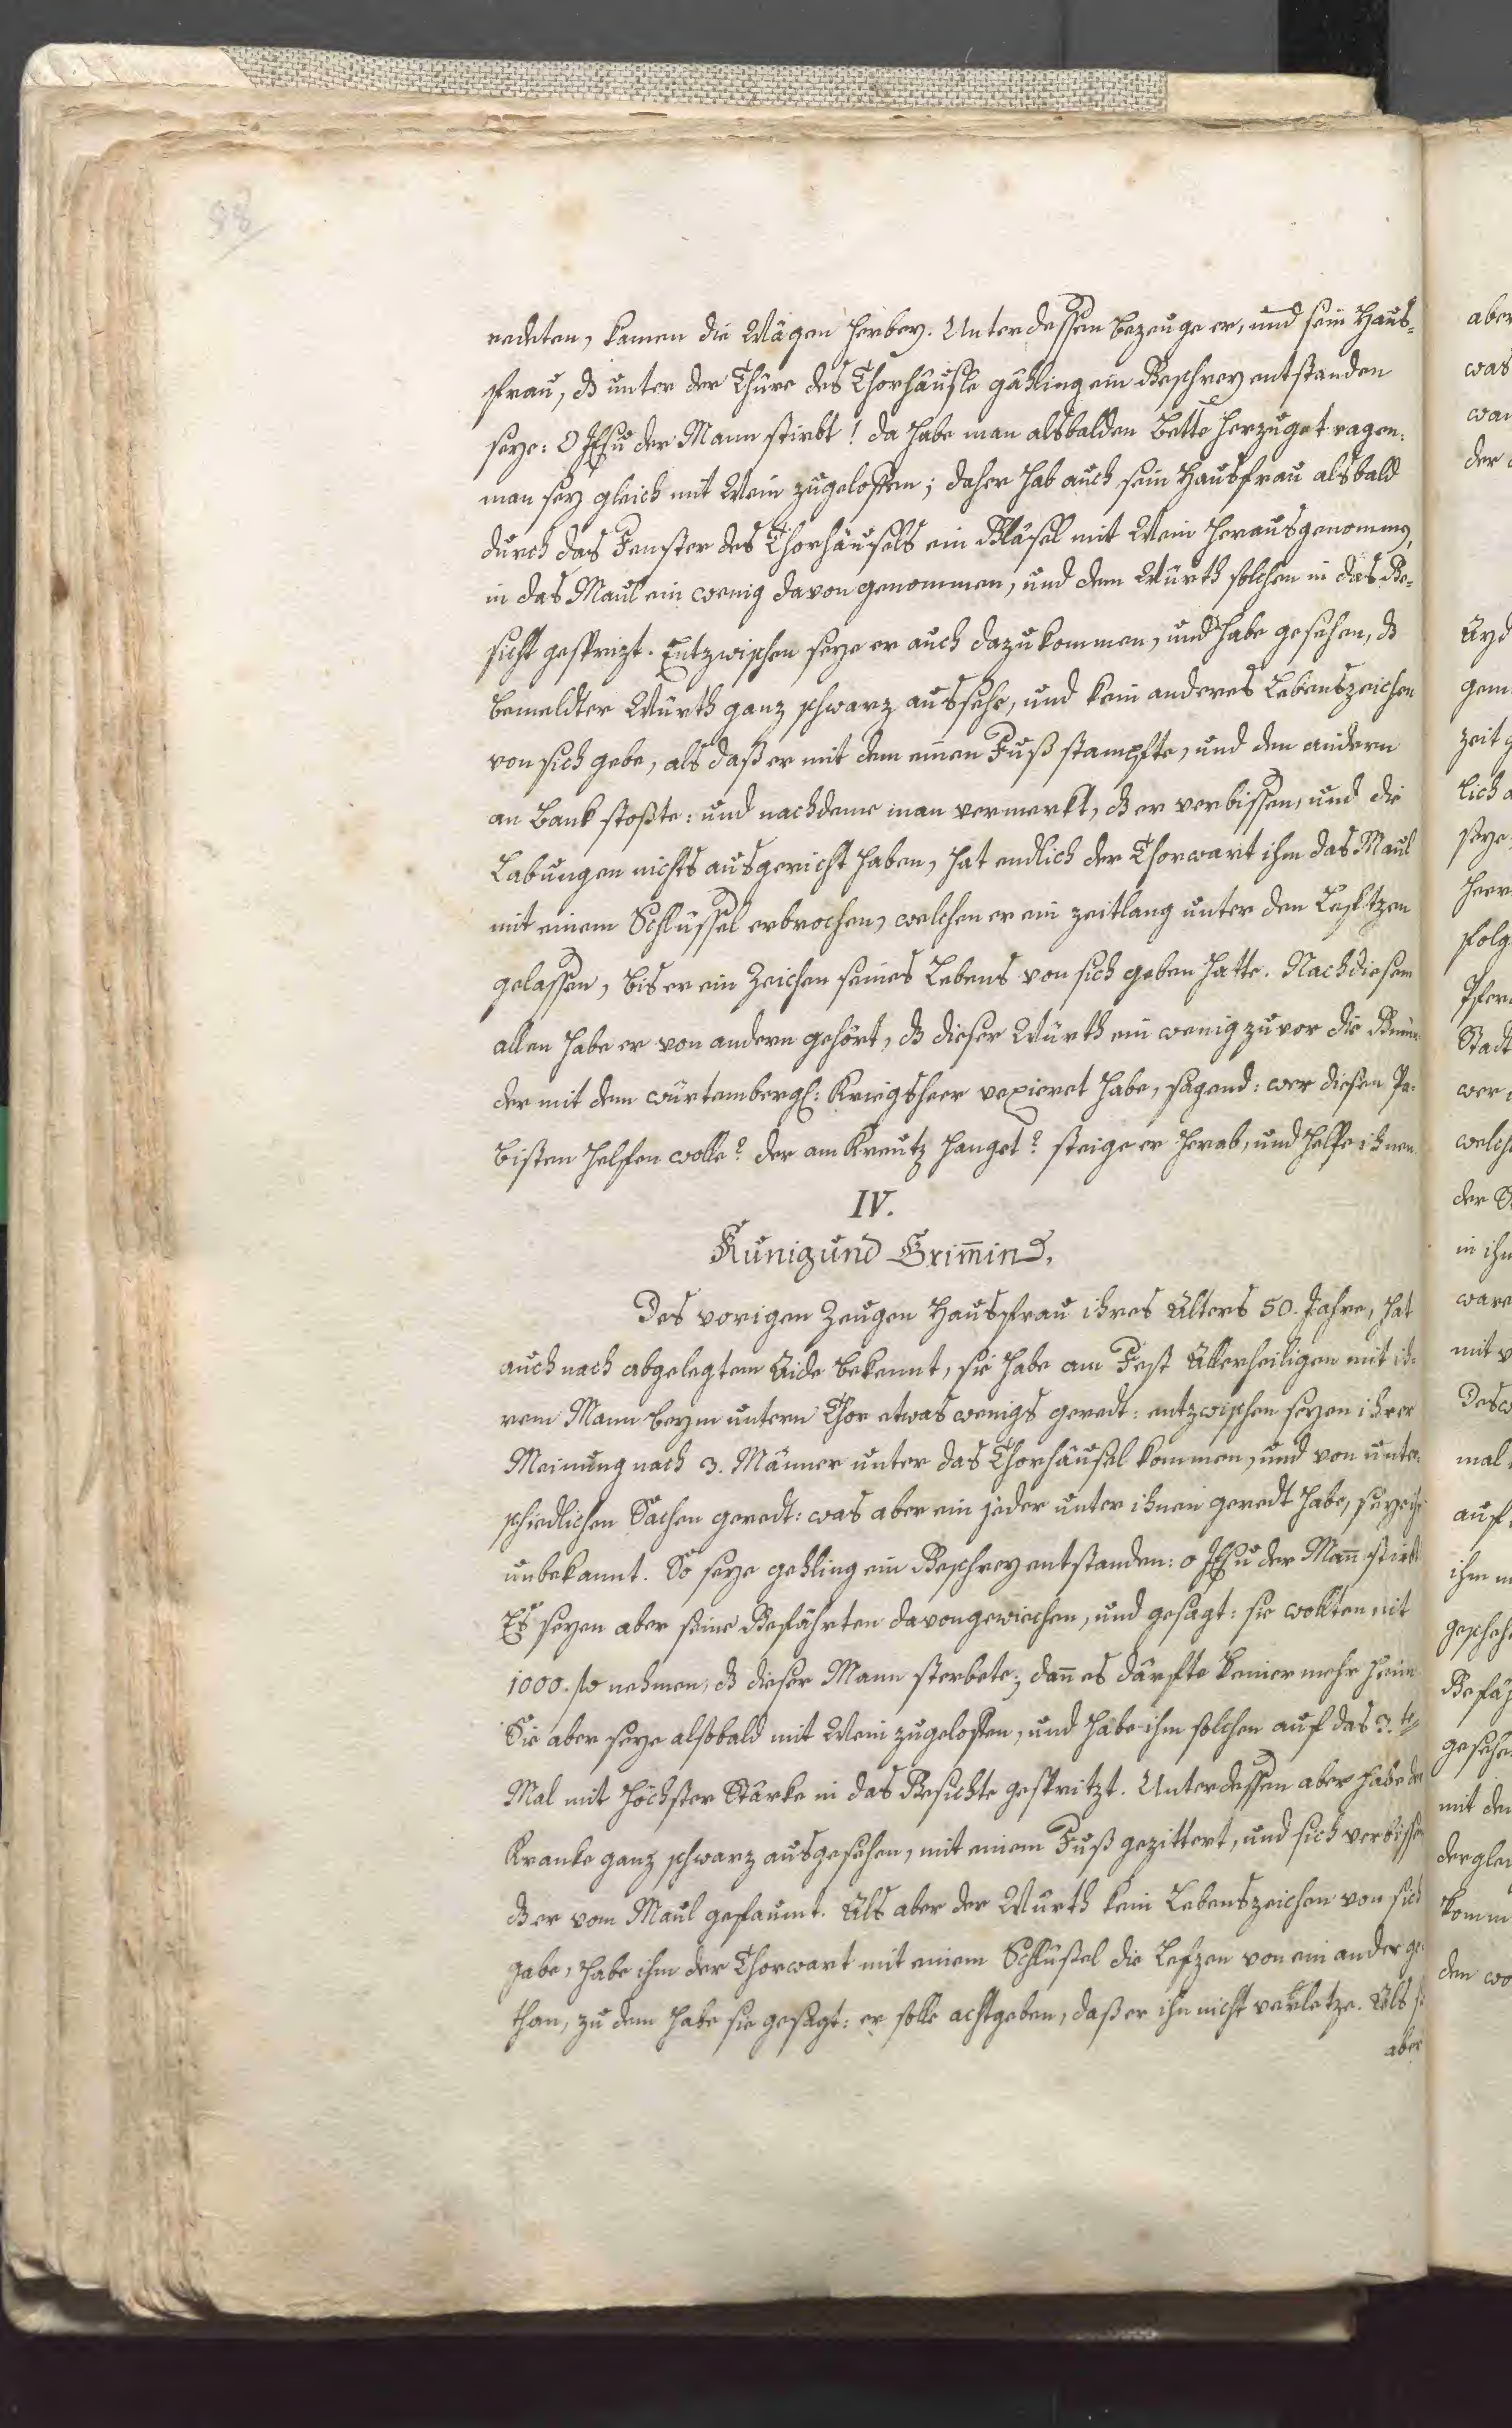 98
redeten, kamen die Wägen herbey. Unterdessen bezeuge er, und sein Haus-
frau, dß unter der Thüre des Thorhäusle gähling ein Geschrey entstanden
seye: O JEsu der Mann stirbt! da habe man alsbalden Bette herzugetragen.
man sey gleich mit Wein zugeloffen; daher hab auch sein Hausfrau alsbald
durch das Fenster des Thorhäusels ein Gläsel mit Wein herausgenommen,
in das Maul ein wenig davon genommen, und dem Würth solchen in das Ge-
sicht gesprizt. Entzwischen seye er auch dazukommen, und habe gesehen, dß
bemeldter Würth ganz schwarz aussehe, und kein anderes Lebenszeichen
von sich gebe, als daß er mit dem einen Fuß stampfte, und den andern
an Bank stoßte: und nachdeme man vermerkt, dß er verbissen, und die
Labungen nichts ausgericht haben, hat endlich der Thorwart ihm das Maul
mit einem Schlüssel erbrochen, welchen er ein zeitlang unter den Lefftzen
gelassen, bis er ein Zeichen seines Lebens von sich geben hatte. Nach diesem
allen habe er von andern gehört, dß dieser Würth ein wenig zuvor die
der mit dem würtembergl: Kriegsheer vexieret habe, sagend: wer diesen Pa-
bisten helffen wolle? der am Kreutz hanget? steige er herab, und helffe ihnen.
IV.
Kunigund Grim̄in,
Des vorigen Zeugen Hausfrau ihres Alters 50. Jahre, hat
auch nach abgelegtem Aide bekennt, sie habe am Fest Allerheiligen mit ih-
rem Mann beym untern Thor etwas wenigs geredt: entzwischen seyen ihrer
Meinung nach 3. Männer unter das Thorhäusel kommen, und von unter-
schiedlichen Sachen geredt: was aber ein jeder unter ihnen geredt habe, seye ihr
unbekannt. So seye gehling ein Geschrey entstanden: o JEsu der Man̄ stirbt
Es seyen aber seine Gefährten davongewichen, und gesagt: sie wollten nit
1000. fl nehmen, dß dieser Mann sterbete; dan̄ es därfte keiner mehr heim
Sie aber seye alsobald mit Wein zugeloffen, und habe ihm solchen auf das 3.te
Mal mit höchster Stärke in das Gesichte gespritzt. Unterdessen aber habe der
Kranke ganz schwarz ausgesehen, mit einem Fuß gezittert, und sich verbissen
dß er vom Maul gefaumt. Als aber der Würth kein Lebenszeichen von sich
gabe, habe ihm der Thorwart mit einem Schlüßel die Lefzen von ein ander ge-
than, zu dem habe sie gesagt: er solle achtgeben, daß er ihn nicht verletze. Als sie
aber